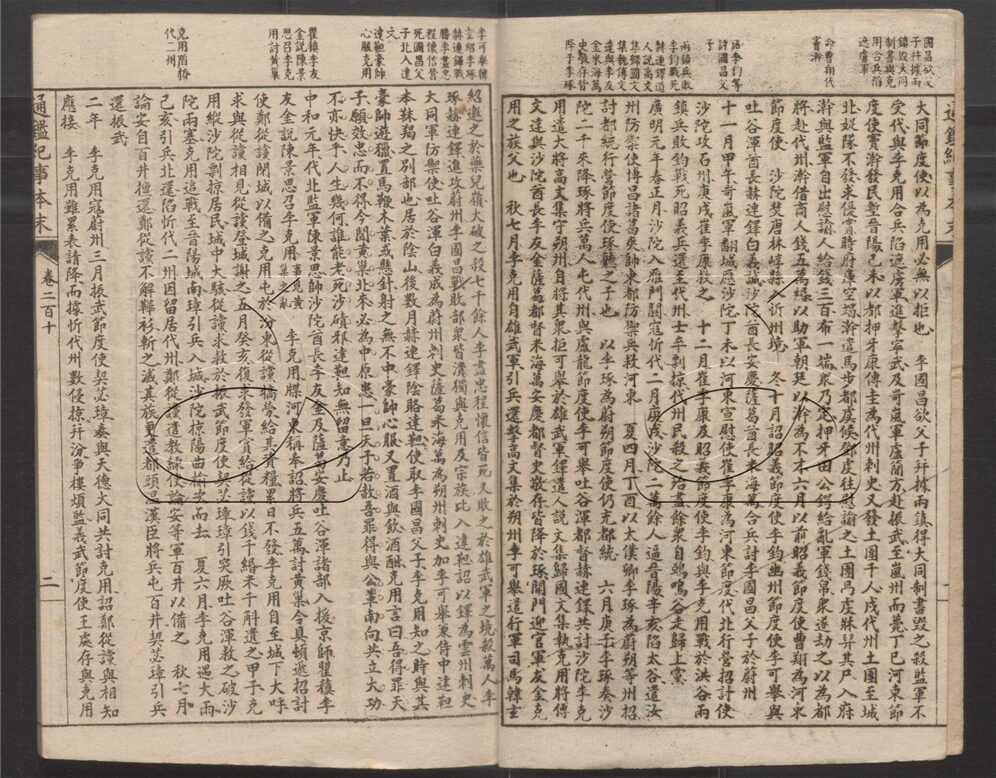 國昌欲父
子并據兩
鎮毀大同
制書與克
用合兵陷
遮虜軍
命曹翔代
竇澣
詔李鈞等
討國昌父
子
兩鎮兵敗
李鈞戰死
赫連鐸遣
人說高文
集歸國文
集執傅文
達與李友
金米海萬
史敬存皆
降于李琢
大同節度使以為克用必無以拒也　李國昌欲父子并據兩鎮得大同制書毀之殺監軍不
受代與李克用合兵陷遮虜軍進擊寧武及岢嵐軍盧簡方赴振武至嵐州而薨丁巳河東節
度使竇澣發民塹晉陽己未以都押牙康傳圭為代州刺史又發土團千人戍代州土團至城
北娖隊不發求優賞時府庫空竭澣遣馬步都虞候鄧虔往慰諭之土團冎虔牀舁其尸入府
澣與監軍自出慰諭人給錢三百布一端眾乃定押牙田公鍔給亂軍錢帛眾遂劫之以為都
將赴代州澣借商人錢五萬緡以助軍朝廷以澣為不才六月以前昭義節度使曹翔為河東
節度使　沙陀焚唐林崞縣入忻州境　冬十月詔昭義節度使李鈞幽州節度使李可舉與
吐谷渾酋長赫連鐸白義誠沙陀酋長安慶薩葛酋長米海萬合兵討李國昌父子於蔚州
十一月甲午岢嵐軍翻城應沙陀丁未以河東宣慰使崔季康為河東節度代北行營招討使
沙陀攻石州庚戌崔季康救之　十二月崔季康及昭義節度使李鈞與李克用戰於洪谷兩
鎮兵敗鈞戰死昭義兵還至代州士卒剽掠代州民殺之殆盡餘眾自鵶鳴谷走歸上黨
廣明元年春正月沙陀入雁門關寇忻代二月庚戌沙陀二萬餘人逼晉陽辛亥陷太谷遣汝
州防禦使博昌諸葛爽帥東都防禦兵救河東　夏四月丁酉以太僕卿李琢為蔚朔等州招
討都統行營節度使琢聽之子也　以李琢為蔚朔節度使仍充都統　六月庚子李琢奏沙
陀二千來降琢將兵萬人屯代州與盧龍節度使李可舉吐谷渾都督赫連鐸共討沙陀李克
用遣大將高文集守朔州自將其眾拒可舉於雄武軍鐸遣人說文集歸國文集執克用將傅
文達與沙陀酋長李友金薩葛都督米海萬安慶都督史敬存皆降於琢開門迎官軍友金克
用之族父也　秋七月李克用自雄武軍引兵還擊高文集於朔州李可舉遣行軍司馬韓玄
通鑑紀事本末
李可舉韓
玄紹李琢
赫連鐸戰
勝李盡忠
程懷信營
死國昌父
子北入達
靼
達靼豪帥
心服克用
瞿稹李友
金說陳景
思召李克
用討黃巢
克用陷忻
代二州
紹邀之於藥兒嶺大破之殺七千餘人李盡忠程懷信皆死又敗之於雄武軍之境殺萬人李
琢赫連鐸進攻蔚州李國昌戰敗部眾皆潰獨與克用及宗族北入達靼詔以鐸為雲州刺史
大同軍防禦使吐谷渾白義成為蔚州刺史薩葛米海萬為朔州刺史加李可舉兼侍中達靼
本靺鞨之別部也居於陰山後數月赫連鐸陰賂達靼使取李國昌父子李克用知之時與其
豪帥遊獵置馬鞭木葉或懸針射之無不中豪帥心服又置酒與飲酒酣克用言曰吾得罪天
子願效忠而不得今聞黃巢北來必為中原患一旦天子若赦吾罪得與公輩南向共立大功
不亦快乎人生幾何誰能老死沙磧邪達靼知無留意乃止
中和元年代北監軍陳景思帥沙陀酋長李友金及薩葛安慶吐谷渾諸部入援京師瞿稹李
友金說陳景思召李克用事見黃巢之亂　李克用牒河東稱奉詔將兵五萬討黃巢令具頓遞招討
使鄭從讜閉城以備之克用屯於汾東從讜犒勞給其資糧累日不發李克用自至城下大呼
求與從讜相見從讜登城謝之五月癸亥復求發軍賞給從讜以錢千緡米千斛遺之甲子克
用縱沙陀剽掠居民城中大駭從讜求救於振武節度使契苾璋璋引突厥吐谷渾救之破沙
陀兩寨克用追戰至晉陽城南璋引兵入城沙陀掠陽曲榆次而去　夏六月李克用遇大雨
己亥引兵北還陷忻代二州因留居代州鄭從讜遣教練使論安等軍百井以備之　秋七月
論安自百井擅還鄭從讜不解鞾衫斬之滅其族更遣都頭溫漢臣將兵屯百井契苾璋引兵
還振武
二年　李克用寇蔚州三月振武節度使契苾璋奏與天德大同共討克用詔鄭從讜與相知
應接　李克用雖累表請降而據忻代州數侵掠并汾爭樓煩監義武節度使王處存與克用
通鑑紀事本末
卷二百十
二